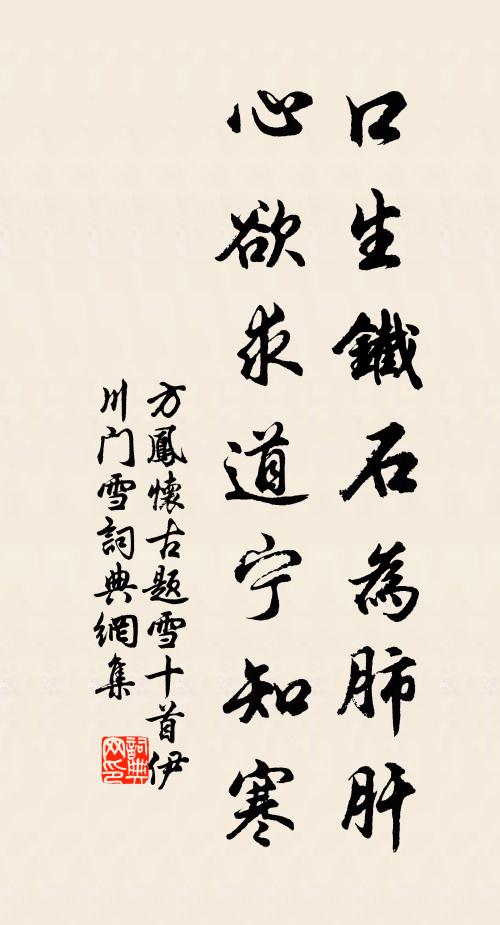 口生鐵石為肺肝
心欲求道宁知寒
方鳳懷古題雪十首伊
川门雪詞典網集
詞典